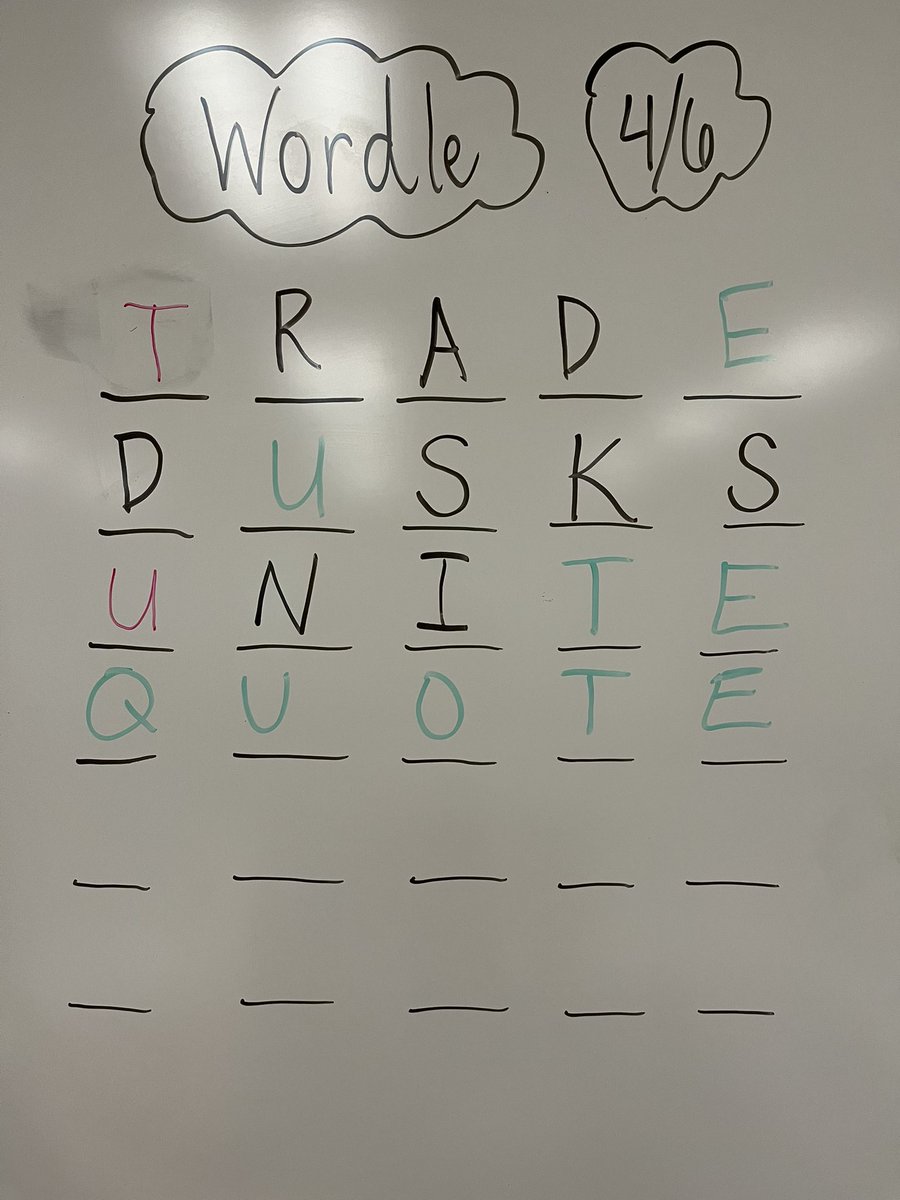 Wordle 4/6
T R A D E
D U S K S
U N I T E
Q U O T E